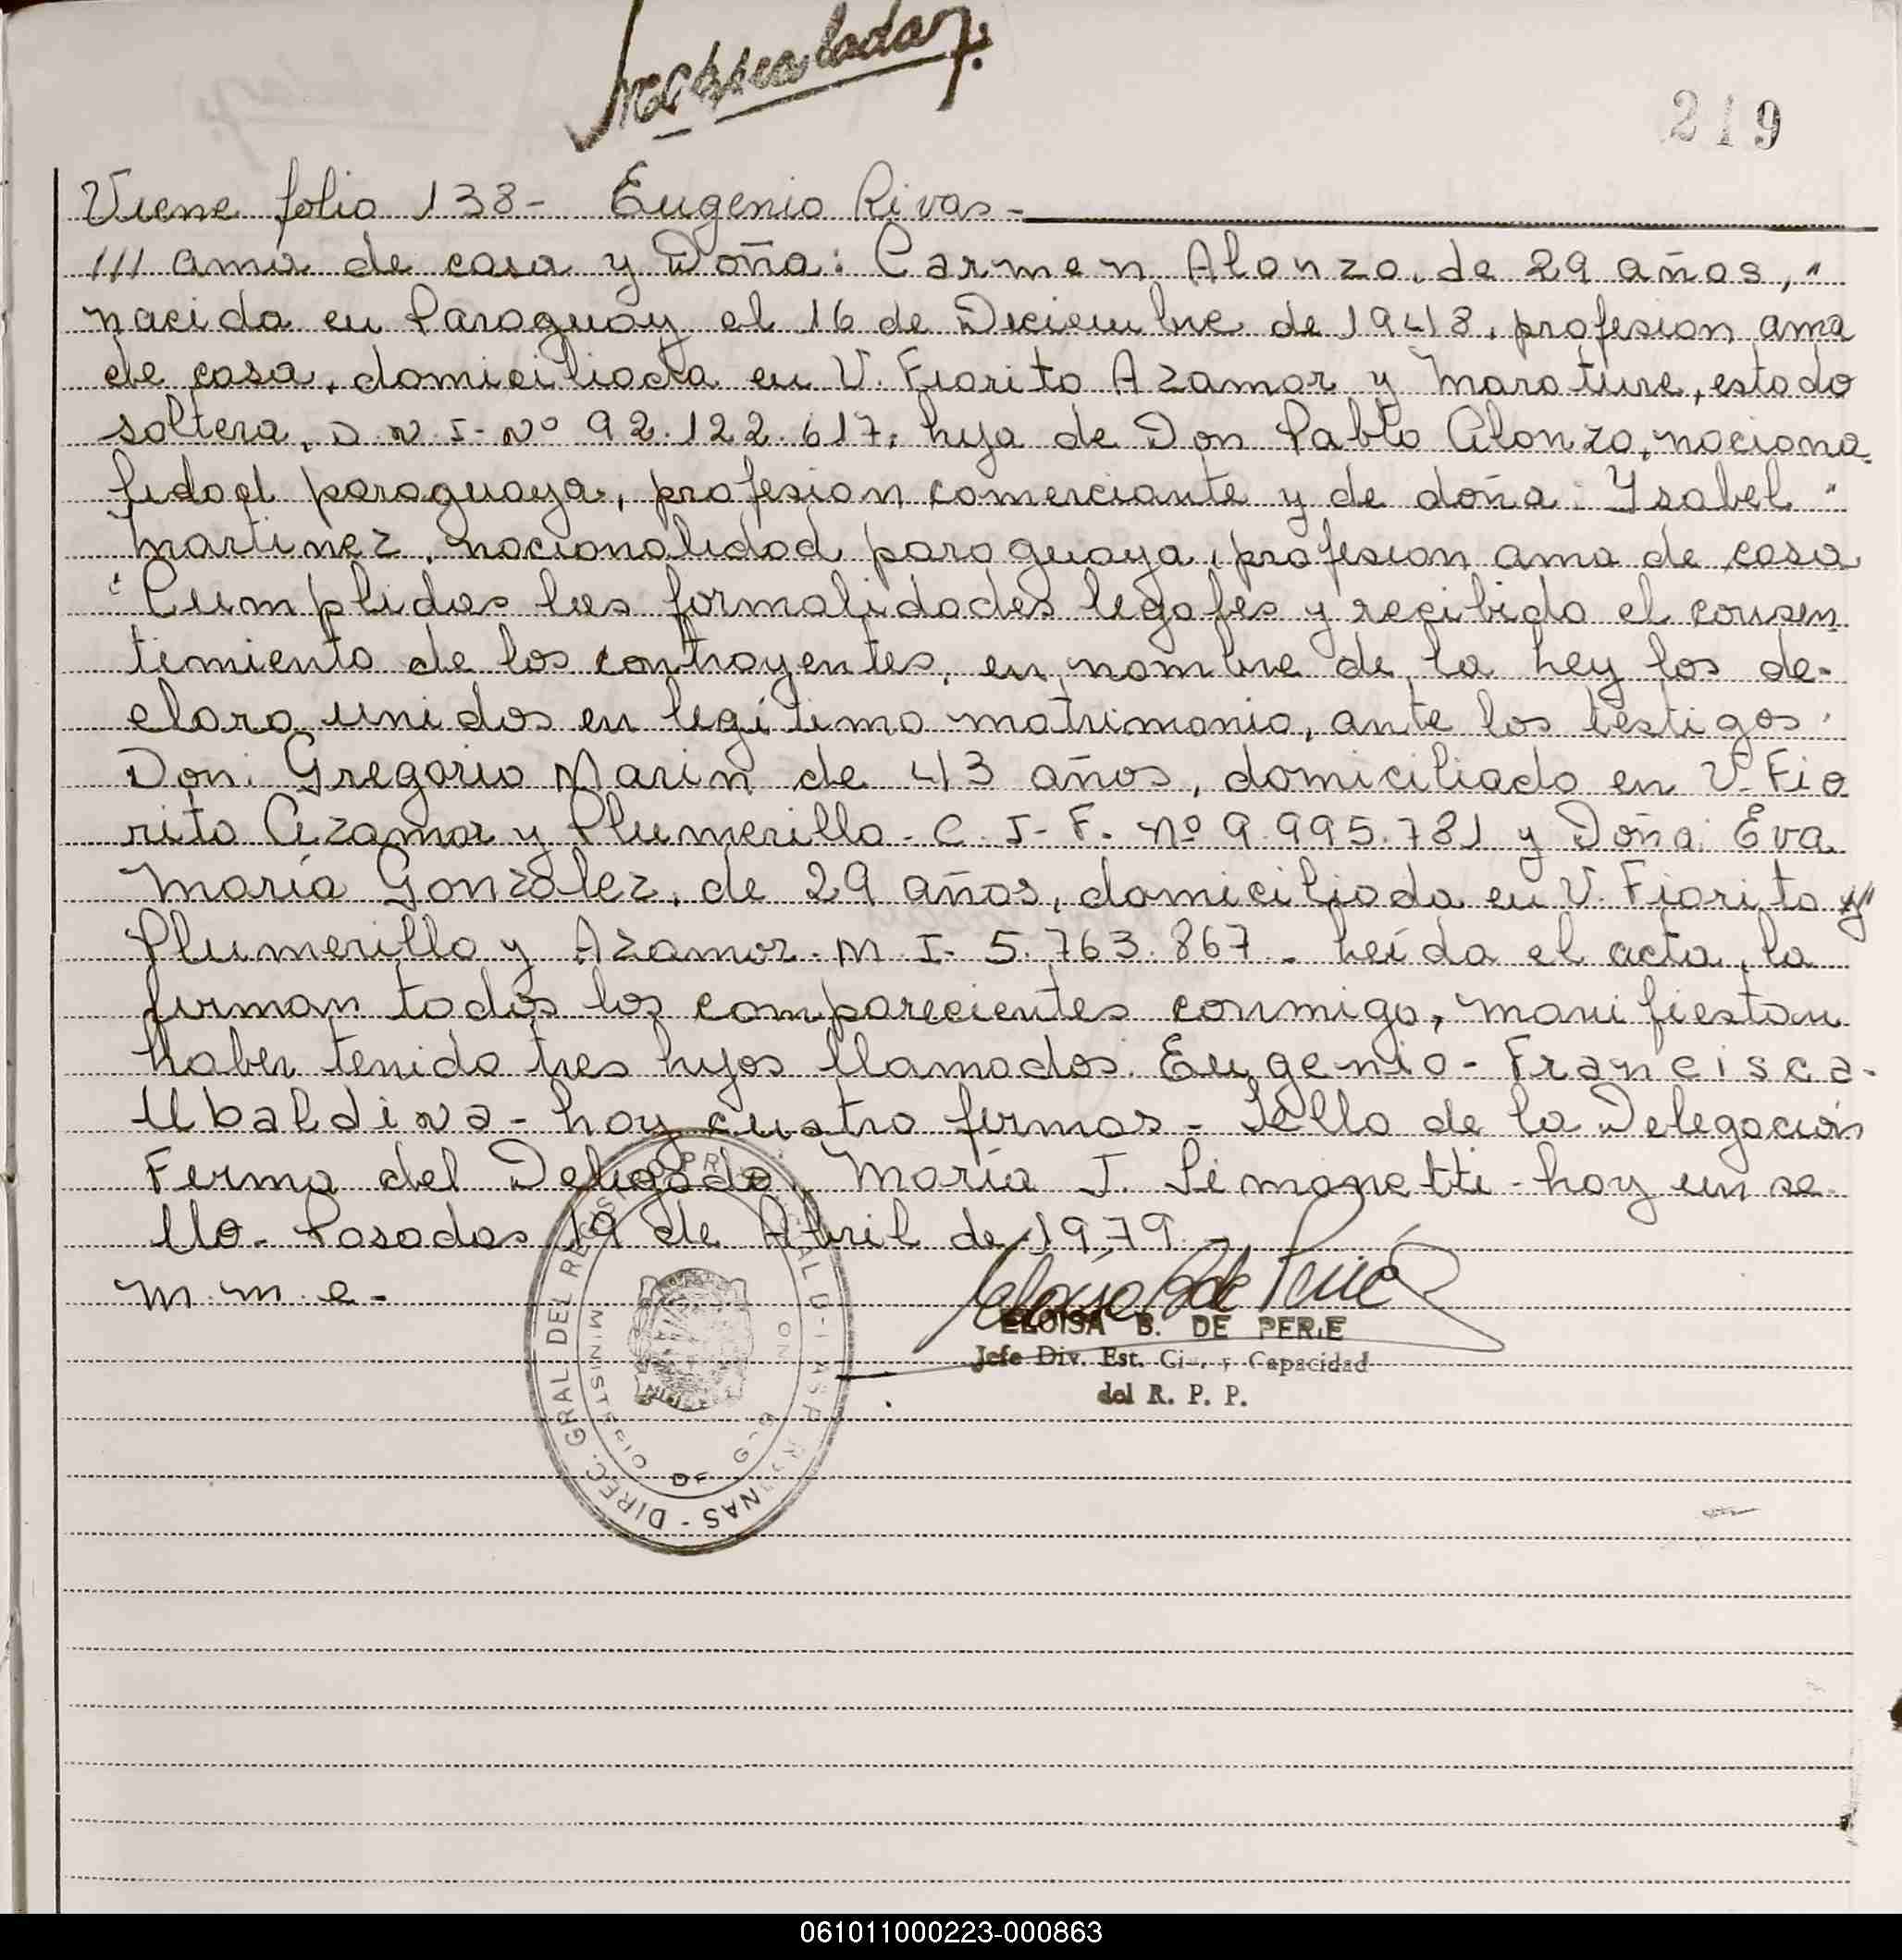 219
Viene folio 138- Eugenio Rivas-
/// ama de casa y Doña: Carmen Alonzo, de 29 años, "
nacida en Paraguay el 16 de Diciembre de 1948, profesion ama
de casa, domiciliada en V. Fiorito Azamor y Marature, estado
soltera, D N I- Nº 92.122.617, hija de Don Pablo Alonzo, naciona
lidad paraguaya, profesion comerciante y de doña: Ysabel "
Martinez, nacionalidad paraguaya, profesion ama de casa
Cumplidas las formalidades legales y recibido el consen
timiento de los contrayentes, en nombre de la Ley los de-
claro unidos en legitimo matrimonio, ante los testigos:
Don: Gregorio Marin de 43 años, domiciliado en V. Fio
rito Azamor y Plumerillo - C. I- F. Nº 9.995.781 y Doña: Eva
María González, de 29 años, domiciliada en V. Fiorito y
Plumerillo y Azamor - M. I- 5.763.867 - Leída el acta, la
firman todos los comparecientes conmigo, manifiestan
haber tenido tres hijos llamados: Eugenio - Francisca -
Ubaldina - hay cuatro firmas - Sello de la Delegación
Firma del Delegado, María J. Simonetti - hay un se-
llo - Posadas 19 de Abril de 1979 -
m.m.e-
ELOISA B. DE PERIE
Jefe Div. Est. Civ. y Capacidad
del R. P. P.
DIREC. GRAL DEL
MINISTERIO DE
061011000223-000863